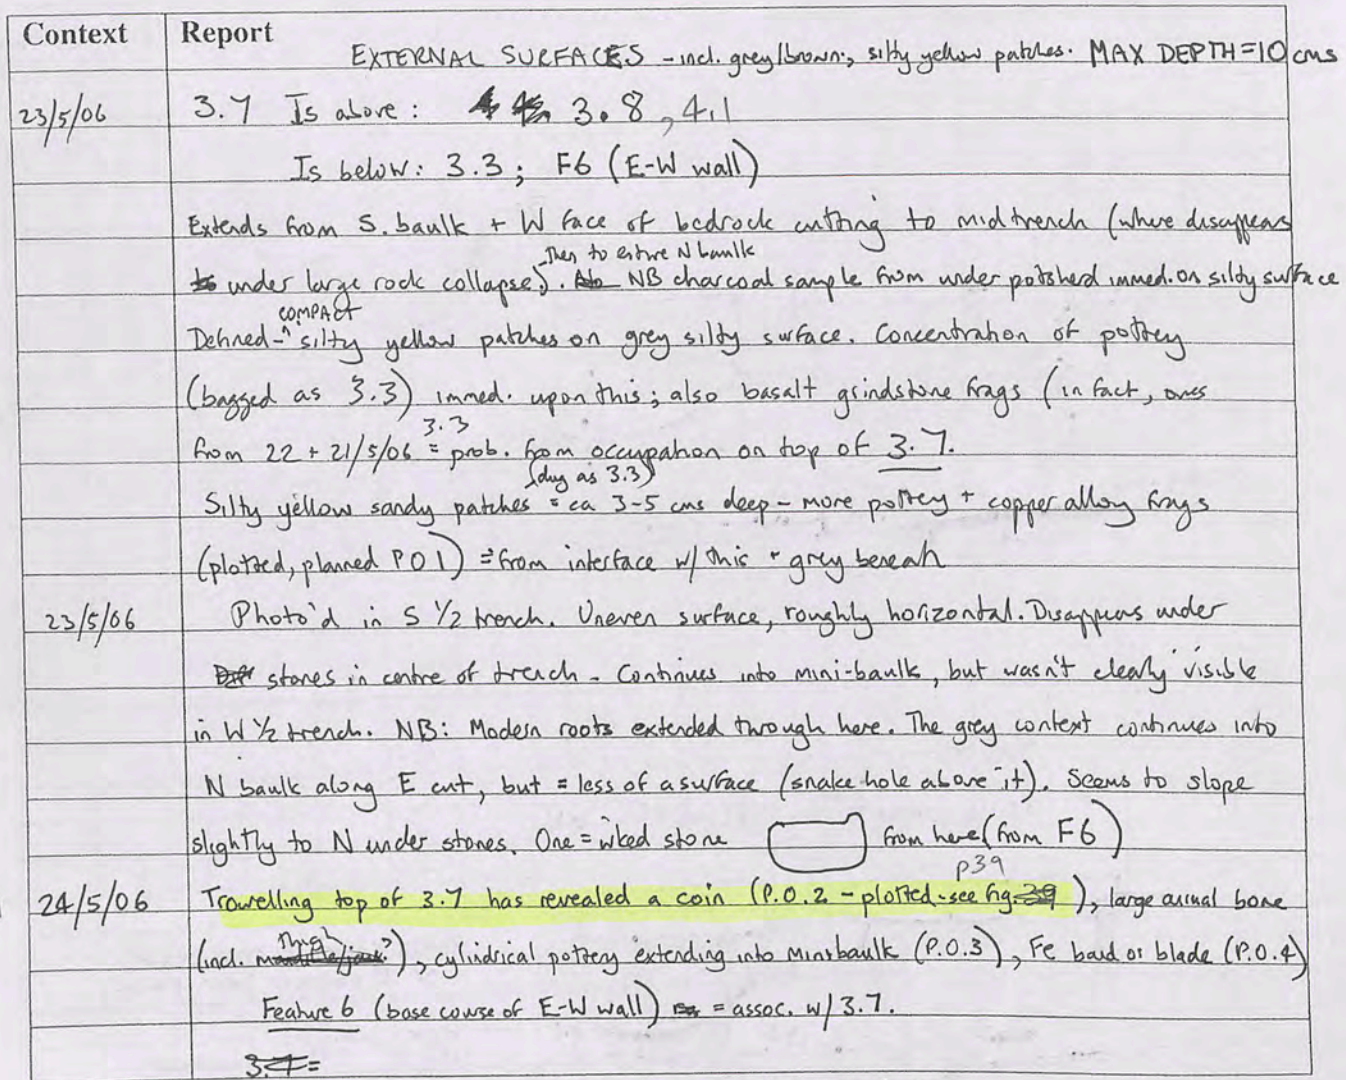 Context Report
EXTERNAL SURFACES - incl. grey/brown; silty yellow patches. MAX DEPTH = 10 cms
23/5/06 3.7 Is above: 3.8, 4.1
Is below: 3.3; F6 (E-W wall)
Extends from S. baulk + W face of bedrock cutting to midtrench (where disappears
then to entire N baulk
under large rock collapse). NB charcoal sample from under potsherd immed. on silty surface
COMPACT
Defined - ^ silty yellow patches on grey silty surface. Concentration of pottery
(bagged as 3.3) immed. upon this; also basalt grindstone frags (in fact, ones
3.3
from 22 + 21/5/06 = prob. from occupation on top of 3.7.
(dug as 3.3)
Silty yellow sandy patches = ca 3-5 cms deep - more pottery + copper alloy frags
(plotted, planned PO1) = from interface w/ this + grey beneah
23/5/06 Photo'd in S 1/2 trench. Uneven surface, roughly horizontal. Disappears under
stones in centre of trench - Continues into mini-baulk, but wasn't clearly visible
in W 1/2 trench. NB: Modern roots extended through here. The grey context continues into
N baulk along E cut, but = less of a surface (snake hole above it). Seems to slope
slightly to N under stones. One = wked stone from here (from F6)
p39
24/5/06 Trowelling top of 3.7 has revealed a coin (P.O.2 - plotted - see fig. 39), large animal bone
Thigh
(incl. mandible/jaw?), cylindrical pottery extending into minibaulk (P.O.3), Fe band or blade (P.O.4)
Feature 6 (base course of E-W wall) = assoc. w/ 3.7.
3.7 =